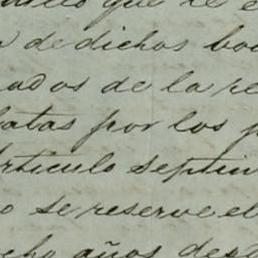 que se
de dichos
ados de la re
atas por los
Articulo septim
o se reserve el
ocho años des